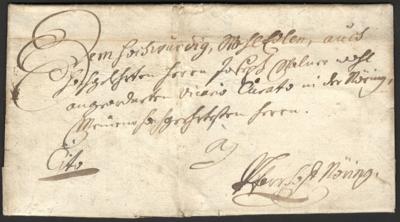 Dem Hochwürdig, WohlEdlen, auch
Hochgelehrten Herrn Joseph wohl
angeordneten Vicario Curato in der Nöring,
Meinem hochgeehrtesten Herrn.
Cito
Pfarrhof Nöring.